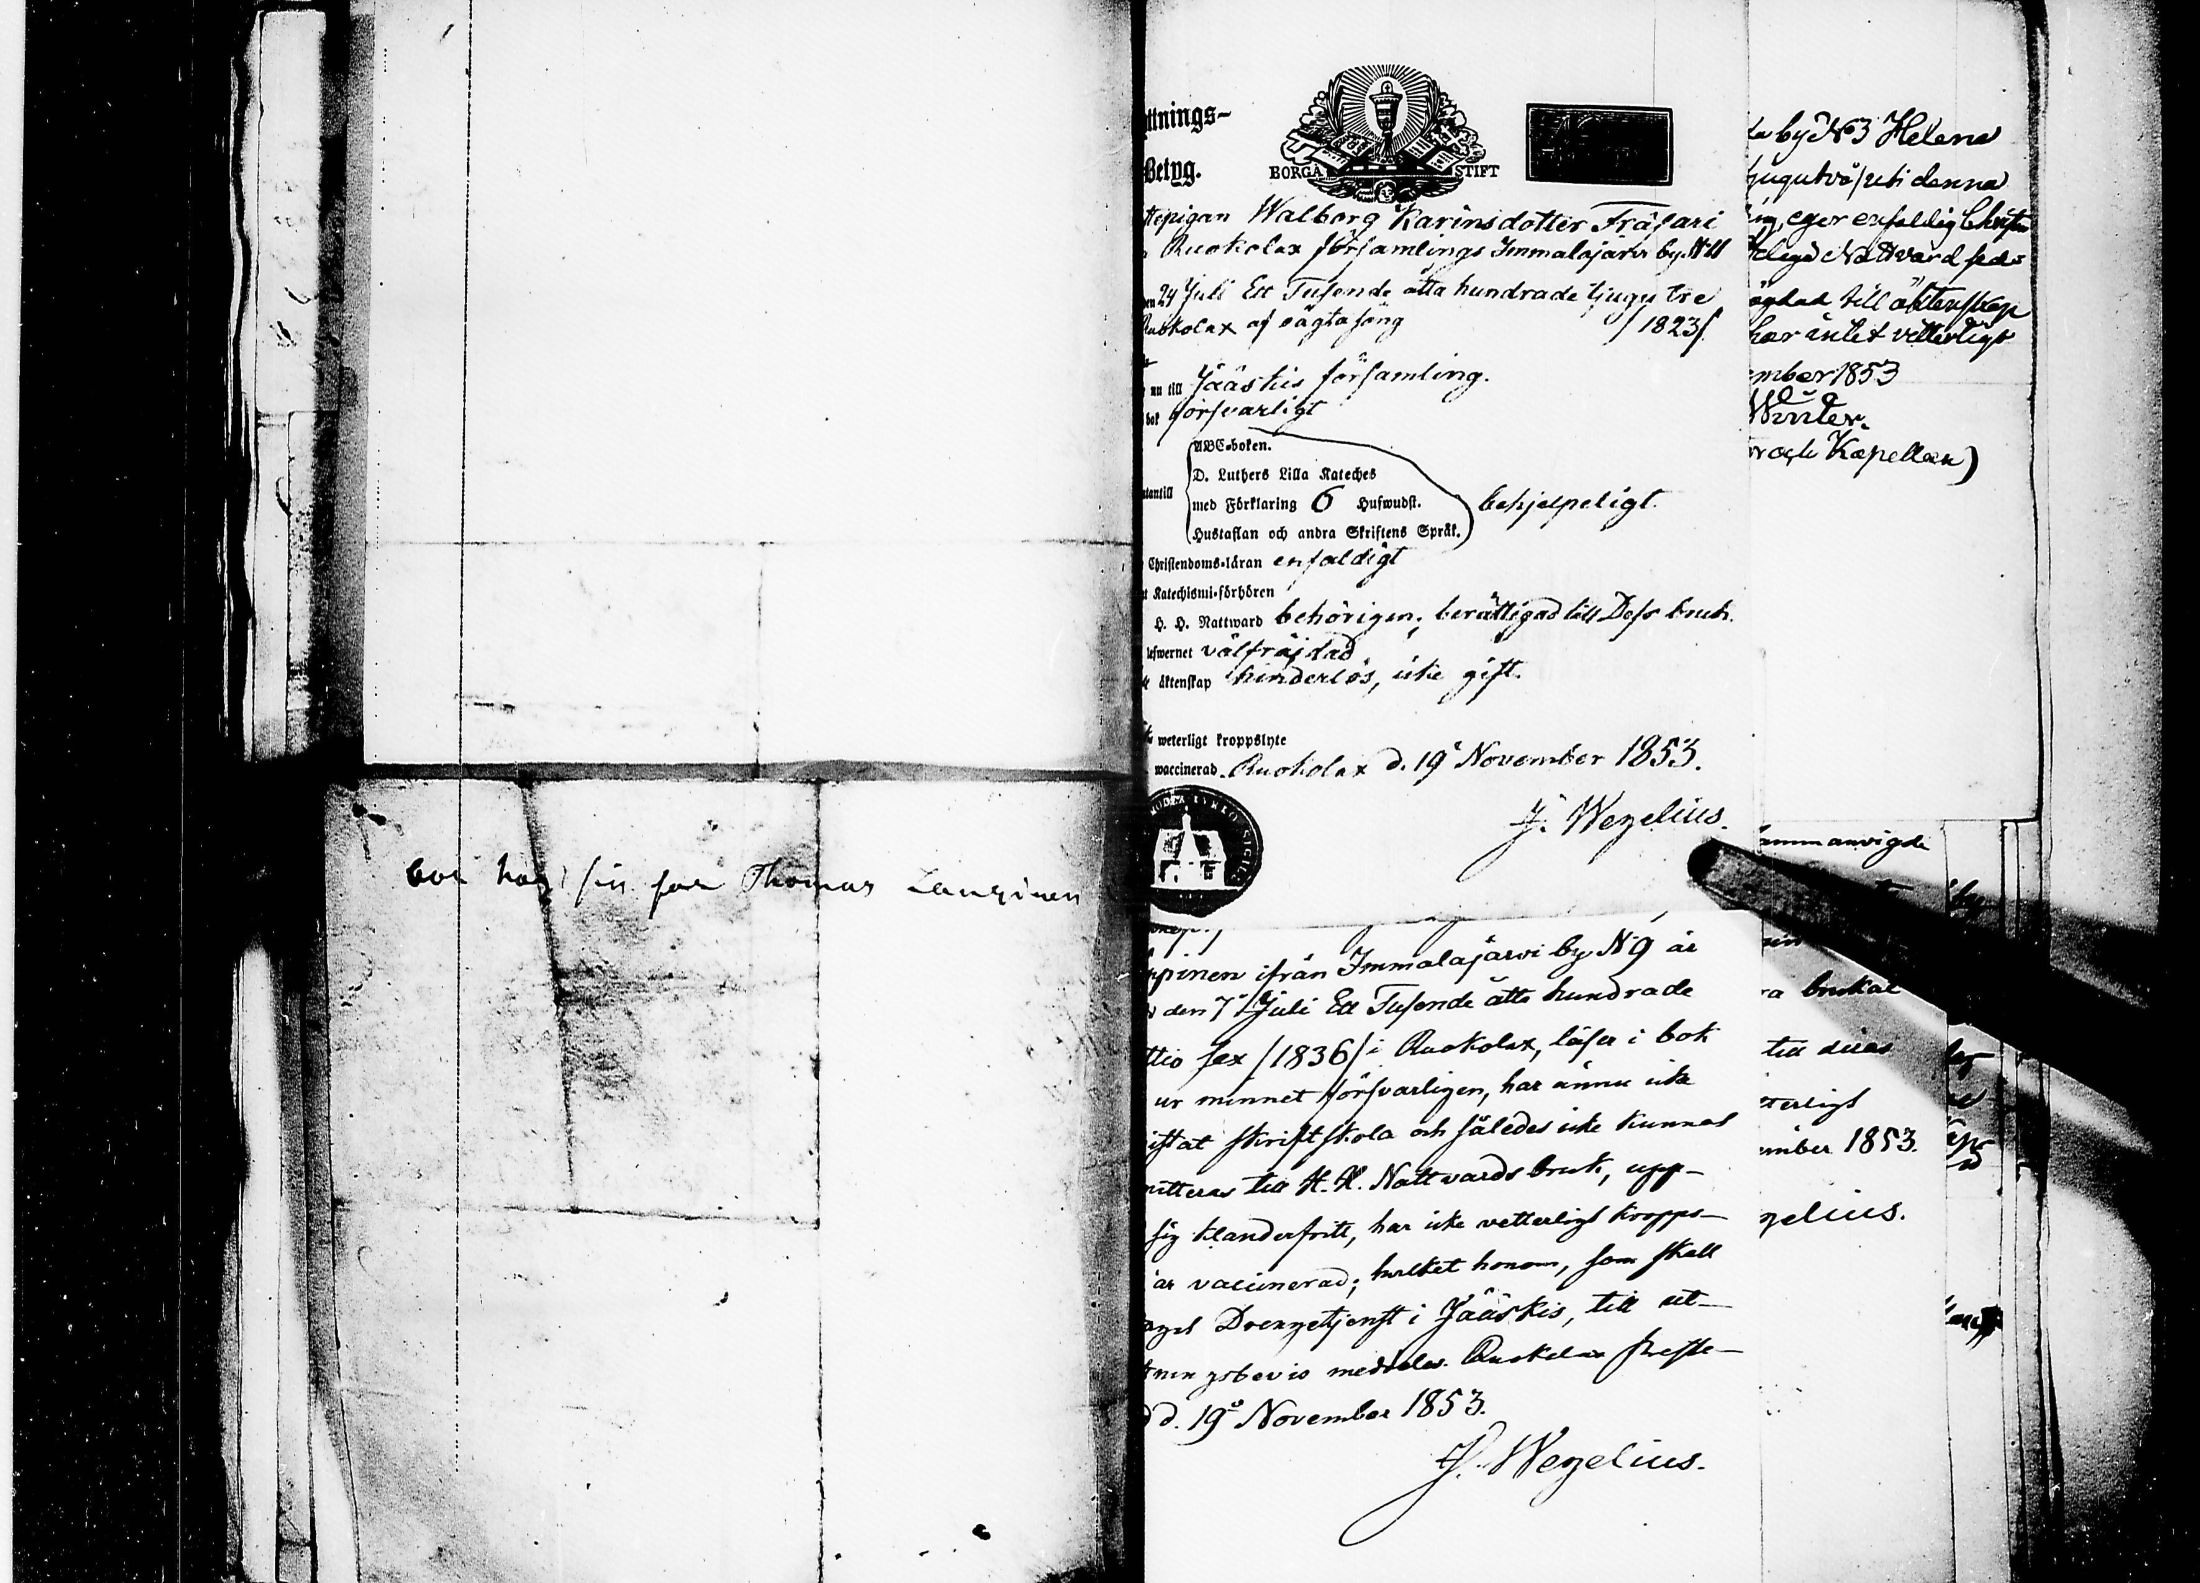 bor hos sin far Thomas Lankinen
ttnings-
Betyg.
BORGÅ STIFT
tepigan Walborg Karinsdotter Träfari
Ruokolax församlings Immalajärvi by N 11
den 24 Juli Ett Tusende åtta hundrade tjugu tre
Ruokolax af oägta säng /1823/.
nu till Jääskis församling.
bok försvarligt
ABC-boken.
D. Luthers Lilla Kateches
med Förklaring 6 Hufwudst.
Hustaflan och andra Skriftens Språk.
utantill
behjelpeligt.
Christendoms-läran enfaldigt
Katechismi-förhören
H. H. Nattward behörigen; berättigad till Dess bruk.
lefwernet välfräjdad
äktenskap hinderlös, icke gift.
weterligt kroppslyte
waccinerad. Ruokolax d. 19 November 1853.
J. Wegelius.
ppinen ifrån Immalajärvi by N 9 är
den 7 Juli Ett Tusende åtta hundrade
ttio sex /1836/ i Ruokolax, läser i bok
ur minnet försvarligen, har ännu icke
istat skriftskola och således icke kunnat
mitteras till H. H. Nattvards bruk, upp-
sig klanderfritt, har icke vetterligt kropps-
är vaccinerad; hvilket honom, som skall
Drengetjenst i Jääskis, till ut-
tningsbevis meddelas. Ruokolax Preste-
d. 19 November 1853.
J. Wegelius.
by N 3 Helena
tjugutvå/ uti denna
eger enfaldig Christen
Nattvard sed-
till äktenskap
har intet vetterligt
ember 1853
Winter.
Kapellan)
ammanvigde
ra brukat
till deras
terligt
ember 1853.
gelius.